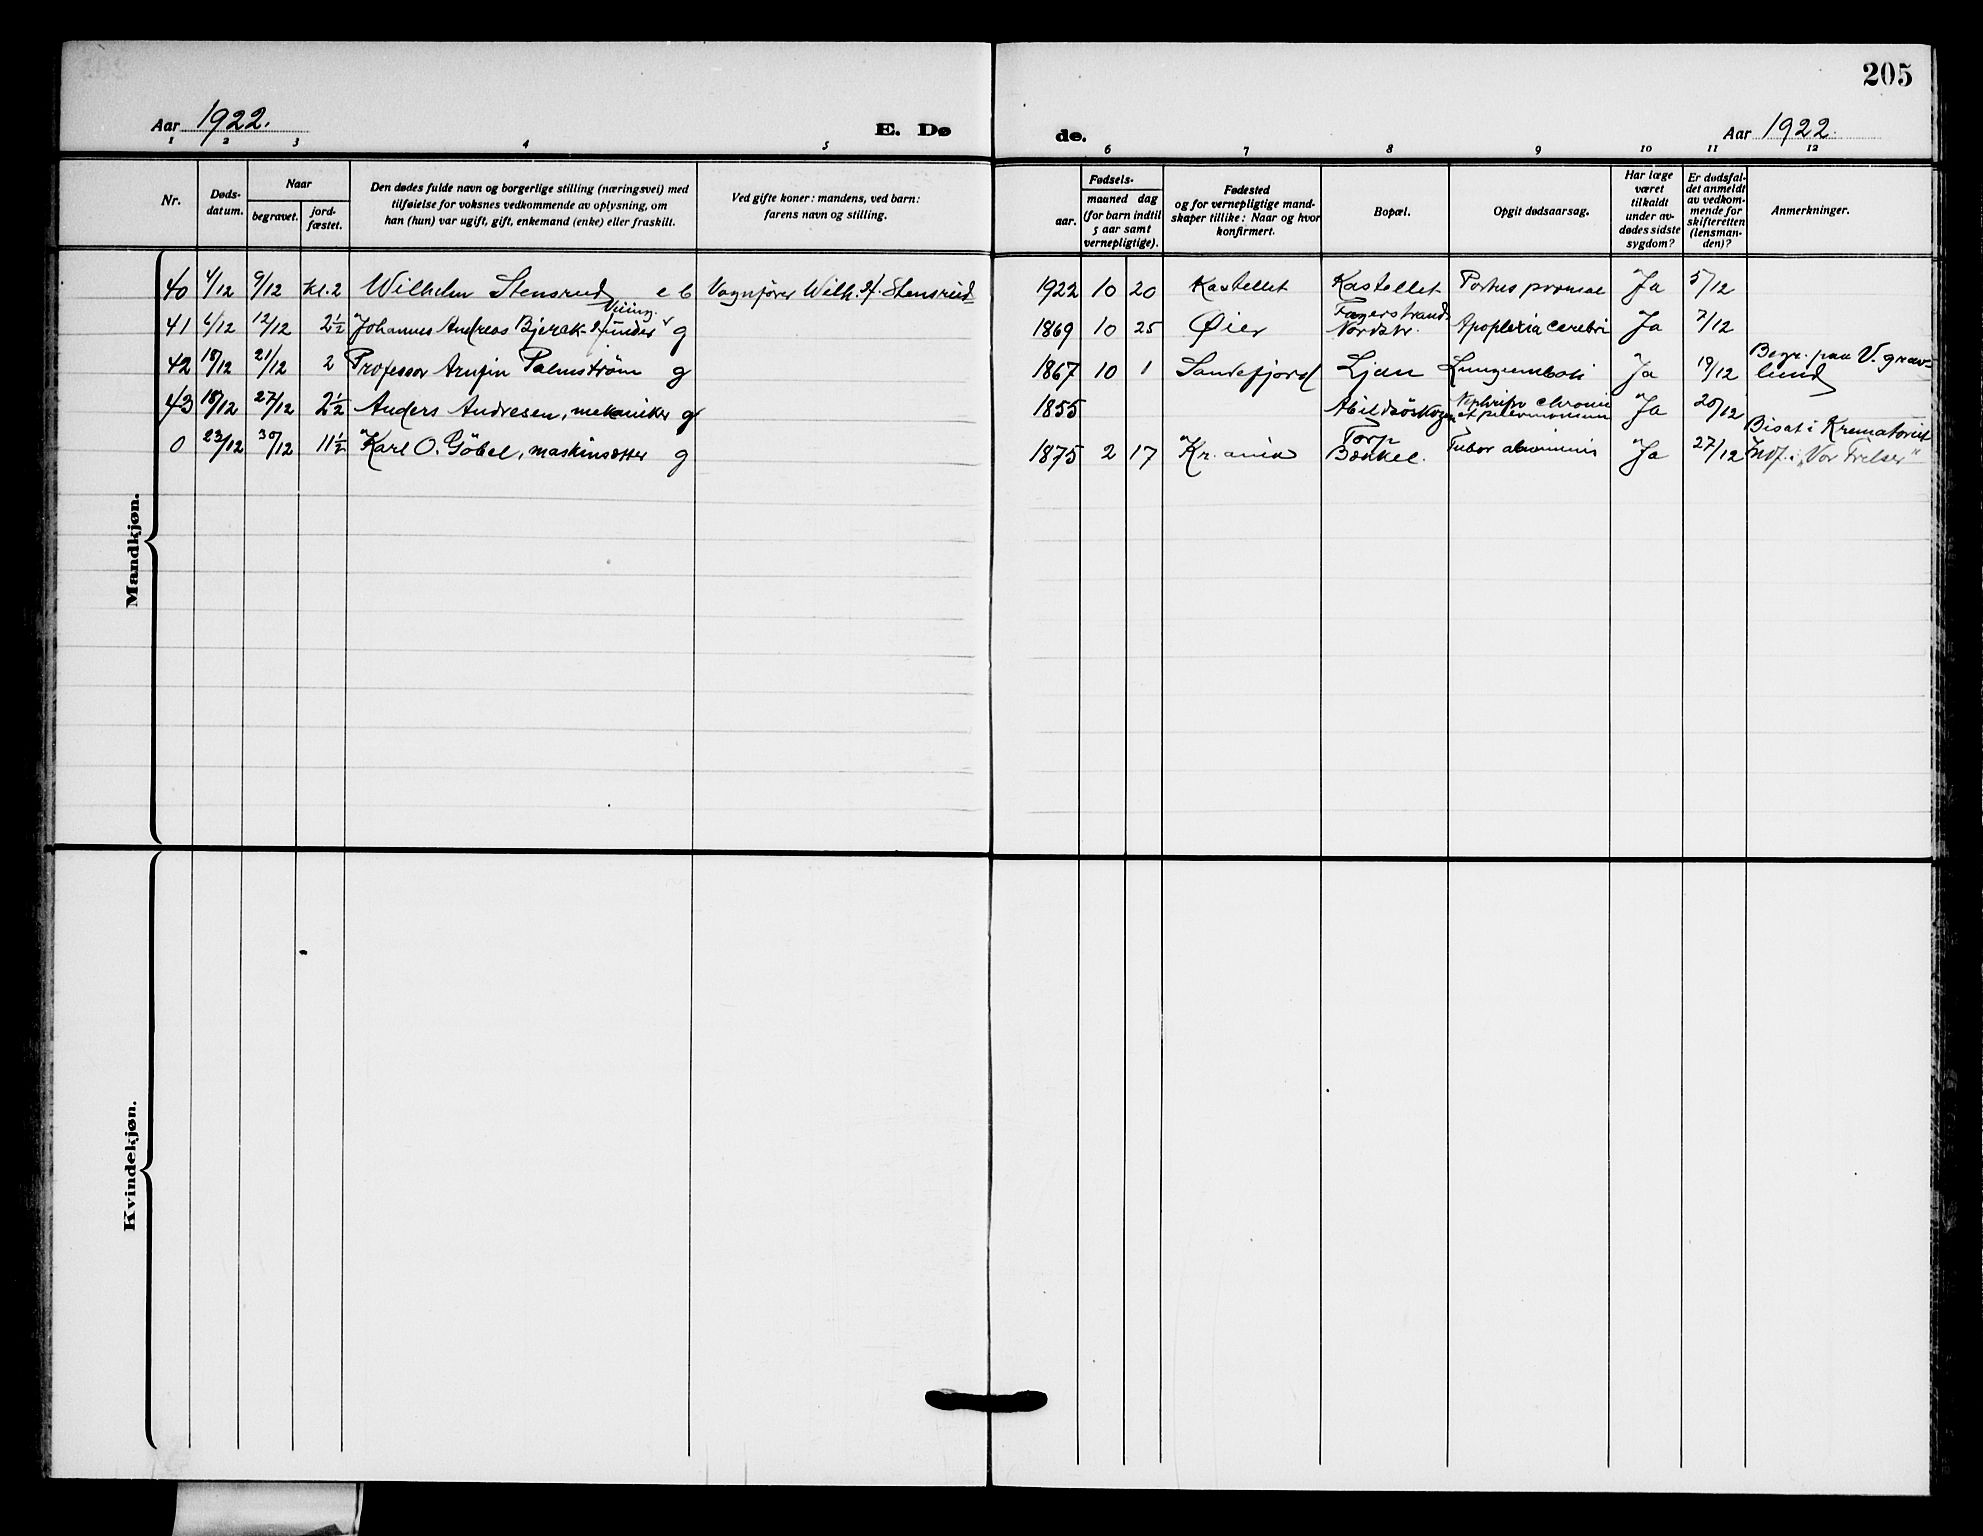 205
Aar 1922.
E. Dø
de.
Aar 1922.
1 2 3 4 5 6 7 8 9 10 11 12
Nr.
Døds-
datum.
Naar
begravet.
jord-
fæstet.
Den dødes fulde navn og borgerlige stilling (næringsvei) med
tilføielse for voksnes vedkommende av oplysning, om
han (hun) var ugift, gift, enkemand (enke) eller fraskilt.
Ved gifte koner: mandens, ved barn:
farens navn og stilling.
Fødsels-
aar.
maaned dag
(for barn indtil
5 aar samt
vernepligtige).
Fødested
og for vernepligtige mand-
skaper tillike: Naar og hvor
konfirmert.
Bopæl.
Opgit dødsaarsag.
Har læge
været
tilkaldt
under av-
dødes sidste
sygdom?
Er dødsfal-
det anmeldt
av vedkom-
mende for
skifteretten
(lensman-
den)?
Anmerkninger.
Mandkjøn.
40 4/12 9/12 kl. 2 Wilhelm Stensrud e b Vognfører Wilh. Stensrud 1922 10 20 Kastellet Kastellet Ja 5/12
41 6/12 12/12 2½ Johannes Andreas Bjerck g 1869 10 25 Øier Fagerstrand Nordstr. Apoplexia cerebri Ja 7/12
42 18/12 21/12 2 Professor Arnfin Palmstrøm g 1867 10 1 Sandefjord Ljan Lungeemboli Ja 19/12 Begr. paa V. grav-
lund
43 18/12 27/12 2½ Anders Andresen, mekaniker g 1855 Abildsöskogen Ja 20/12
0 23/12 30/12 11½ Karl O. Göbel, maskinsætter g 1875 2 17 Kr.ania Torp Bækkel. Ja 27/12 Bisat i Krematoriet
"Vor Frelser"
Kvindekjøn.